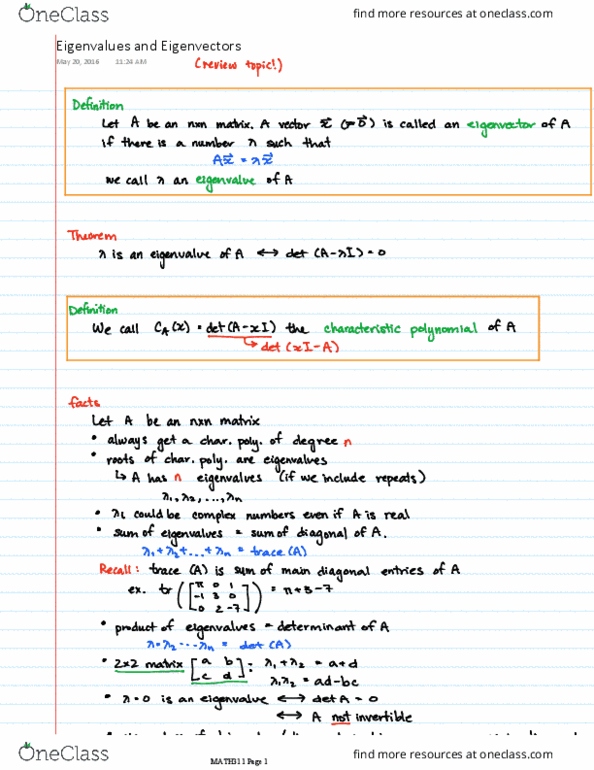 OneClass
find more resources at oneclass.com
Eigenvalues and Eigenvectors
May 20, 2016 11:24 AM
(review topic!)
Definition
Let A be an n×n matrix. A vector x⃗ (≠0⃗) is called an eigenvector of A
if there is a number λ such that
Ax⃗ = λx⃗
we call λ an eigenvalue of A
Theorem
λ is an eigenvalue of A ↔ det (A-λI) = 0
Definition
We call C_A(x) = det(A-xI) the characteristic polynomial of A
↳ det (xI-A)
facts
Let A be an n×n matrix
• always get a char. poly. of degree n
• roots of char. poly. are eigenvalues
↳ A has n eigenvalues (if we include repeats)
λ₁, λ₂, ..., λₙ
• λi could be complex numbers even if A is real
• sum of eigenvalues = sum of diagonal of A.
λ₁ + λ₂ + ... + λₙ = trace (A)
Recall: trace (A) is sum of main diagonal entries of A
ex. tr ([π 0 1
-1 3 0
0 2 -7]) = π+3-7
• product of eigenvalues = determinant of A
λ₁·λ₂ ··· λₙ = det (A)
• 2×2 matrix [a b
c d] : λ₁ + λ₂ = a+d
λ₁λ₂ = ad-bc
• λ=0 is an eigenvalue ↔ det A = 0
↔ A not invertible
OneClass
MATH311 Page 1
find more resources at oneclass.com